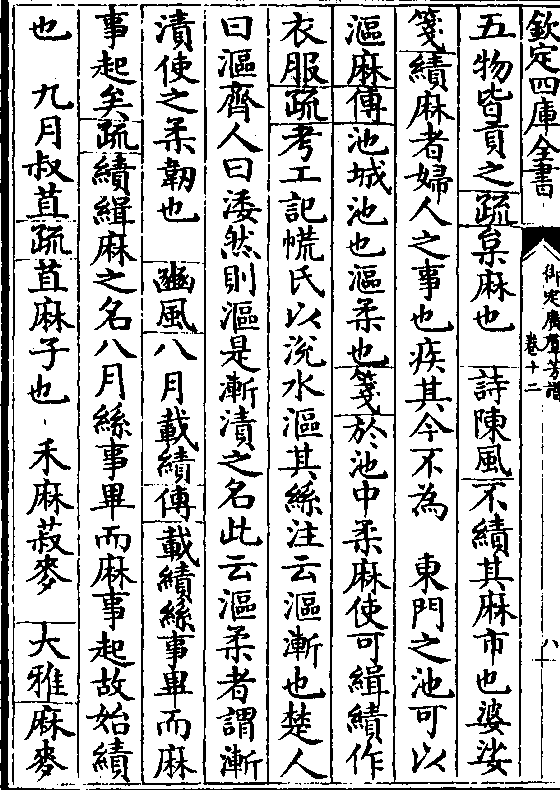 欽定四庫全書
御定廣羣芳譜
卷十二
八
五物皆貢之疏枲麻也　詩陳風不績其麻市也婆娑
箋績麻者婦人之事也疾其今不為　東門之池可以
漚麻傳池城池也漚柔也箋於池中柔麻使可緝績作
衣服疏考工記㡛氏以涚水漚其絲注云漚漸也楚人
曰漚齊人曰涹然則漚是漸漬之名此云漚柔者謂漸
漬使之柔韌也　豳風八月載績傳載績絲事畢而麻
事起矣疏績緝麻之名八月絲事畢而麻事起故始績
也　九月叔苴疏苴麻子也　禾麻菽麥　大雅麻麥